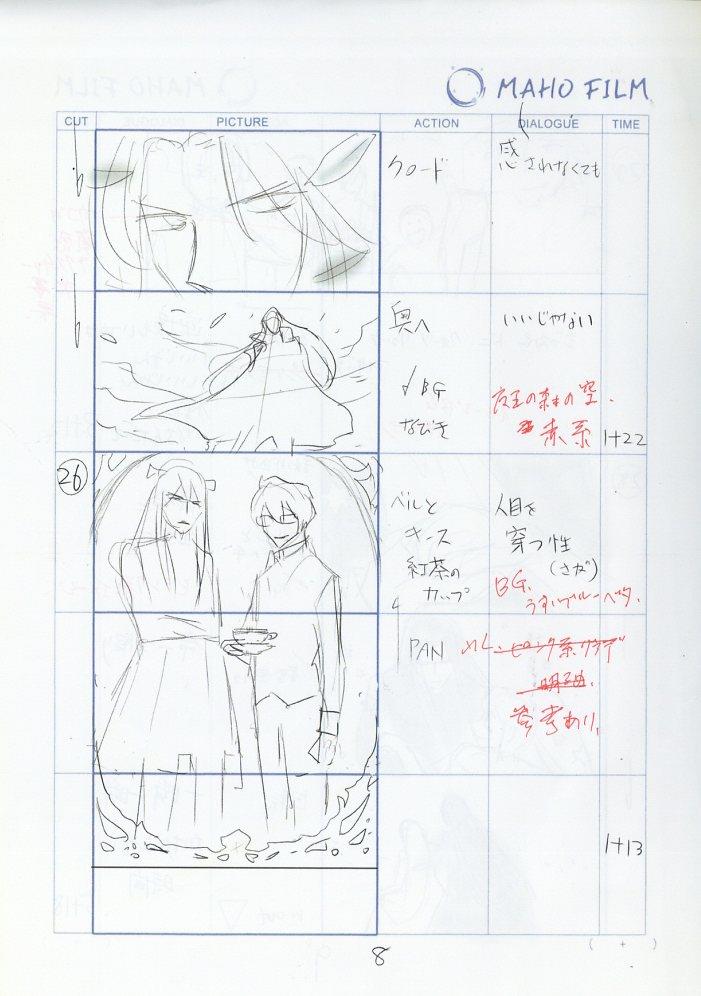 MAHO FILM
CUT PICTURE ACTION DIALOGUE TIME
クロード
感されなくても
奥へ
いいじゃない
BG
なびき
夜王の森の空、
赤系
1+22
26
ベルと
キース
紅茶の
カップ
人目を
穿つ性
(さが)
BG、
うすいブルーベタ、
PAN
ピンク系
参考あり、
1+13
( + )
8